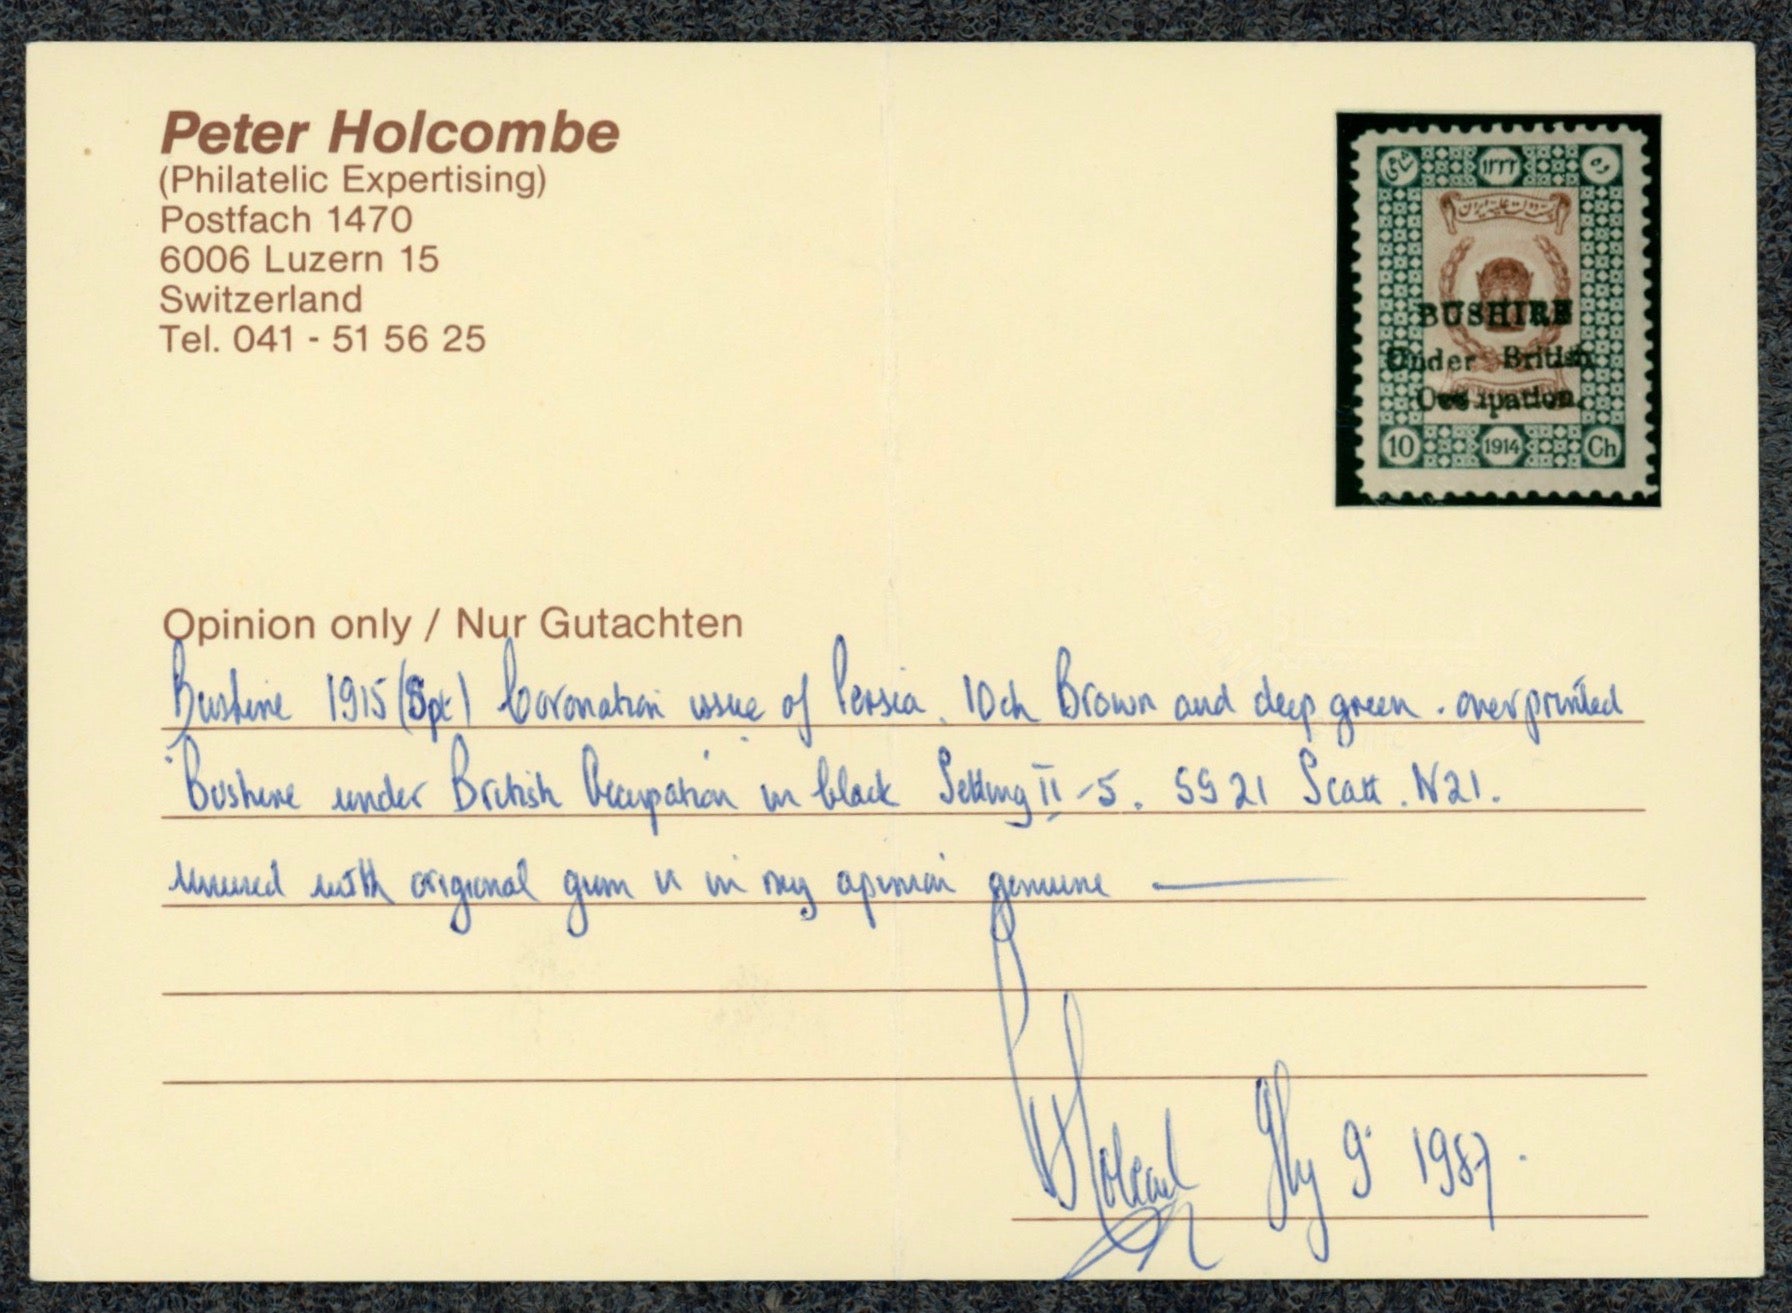 Peter Holcombe
(Philatelic Expertising)
Postfach 1470
6006 Luzern 15
Switzerland
Tel. 041 - 51 56 25
۱۳۳۳
BUSHIRE
Under British
Occupation.
10 1914 Ch
Opinion only / Nur Gutachten
Bushire 1915 (Spt) Coronation issue of Persia. 10ch Brown and deep green. overprinted
"Bushire under British Occupation" in black Setting II-5. SG 21 Scott. N21.
unused with original gum is in my opinion genuine
Holcombe July 9 1987.